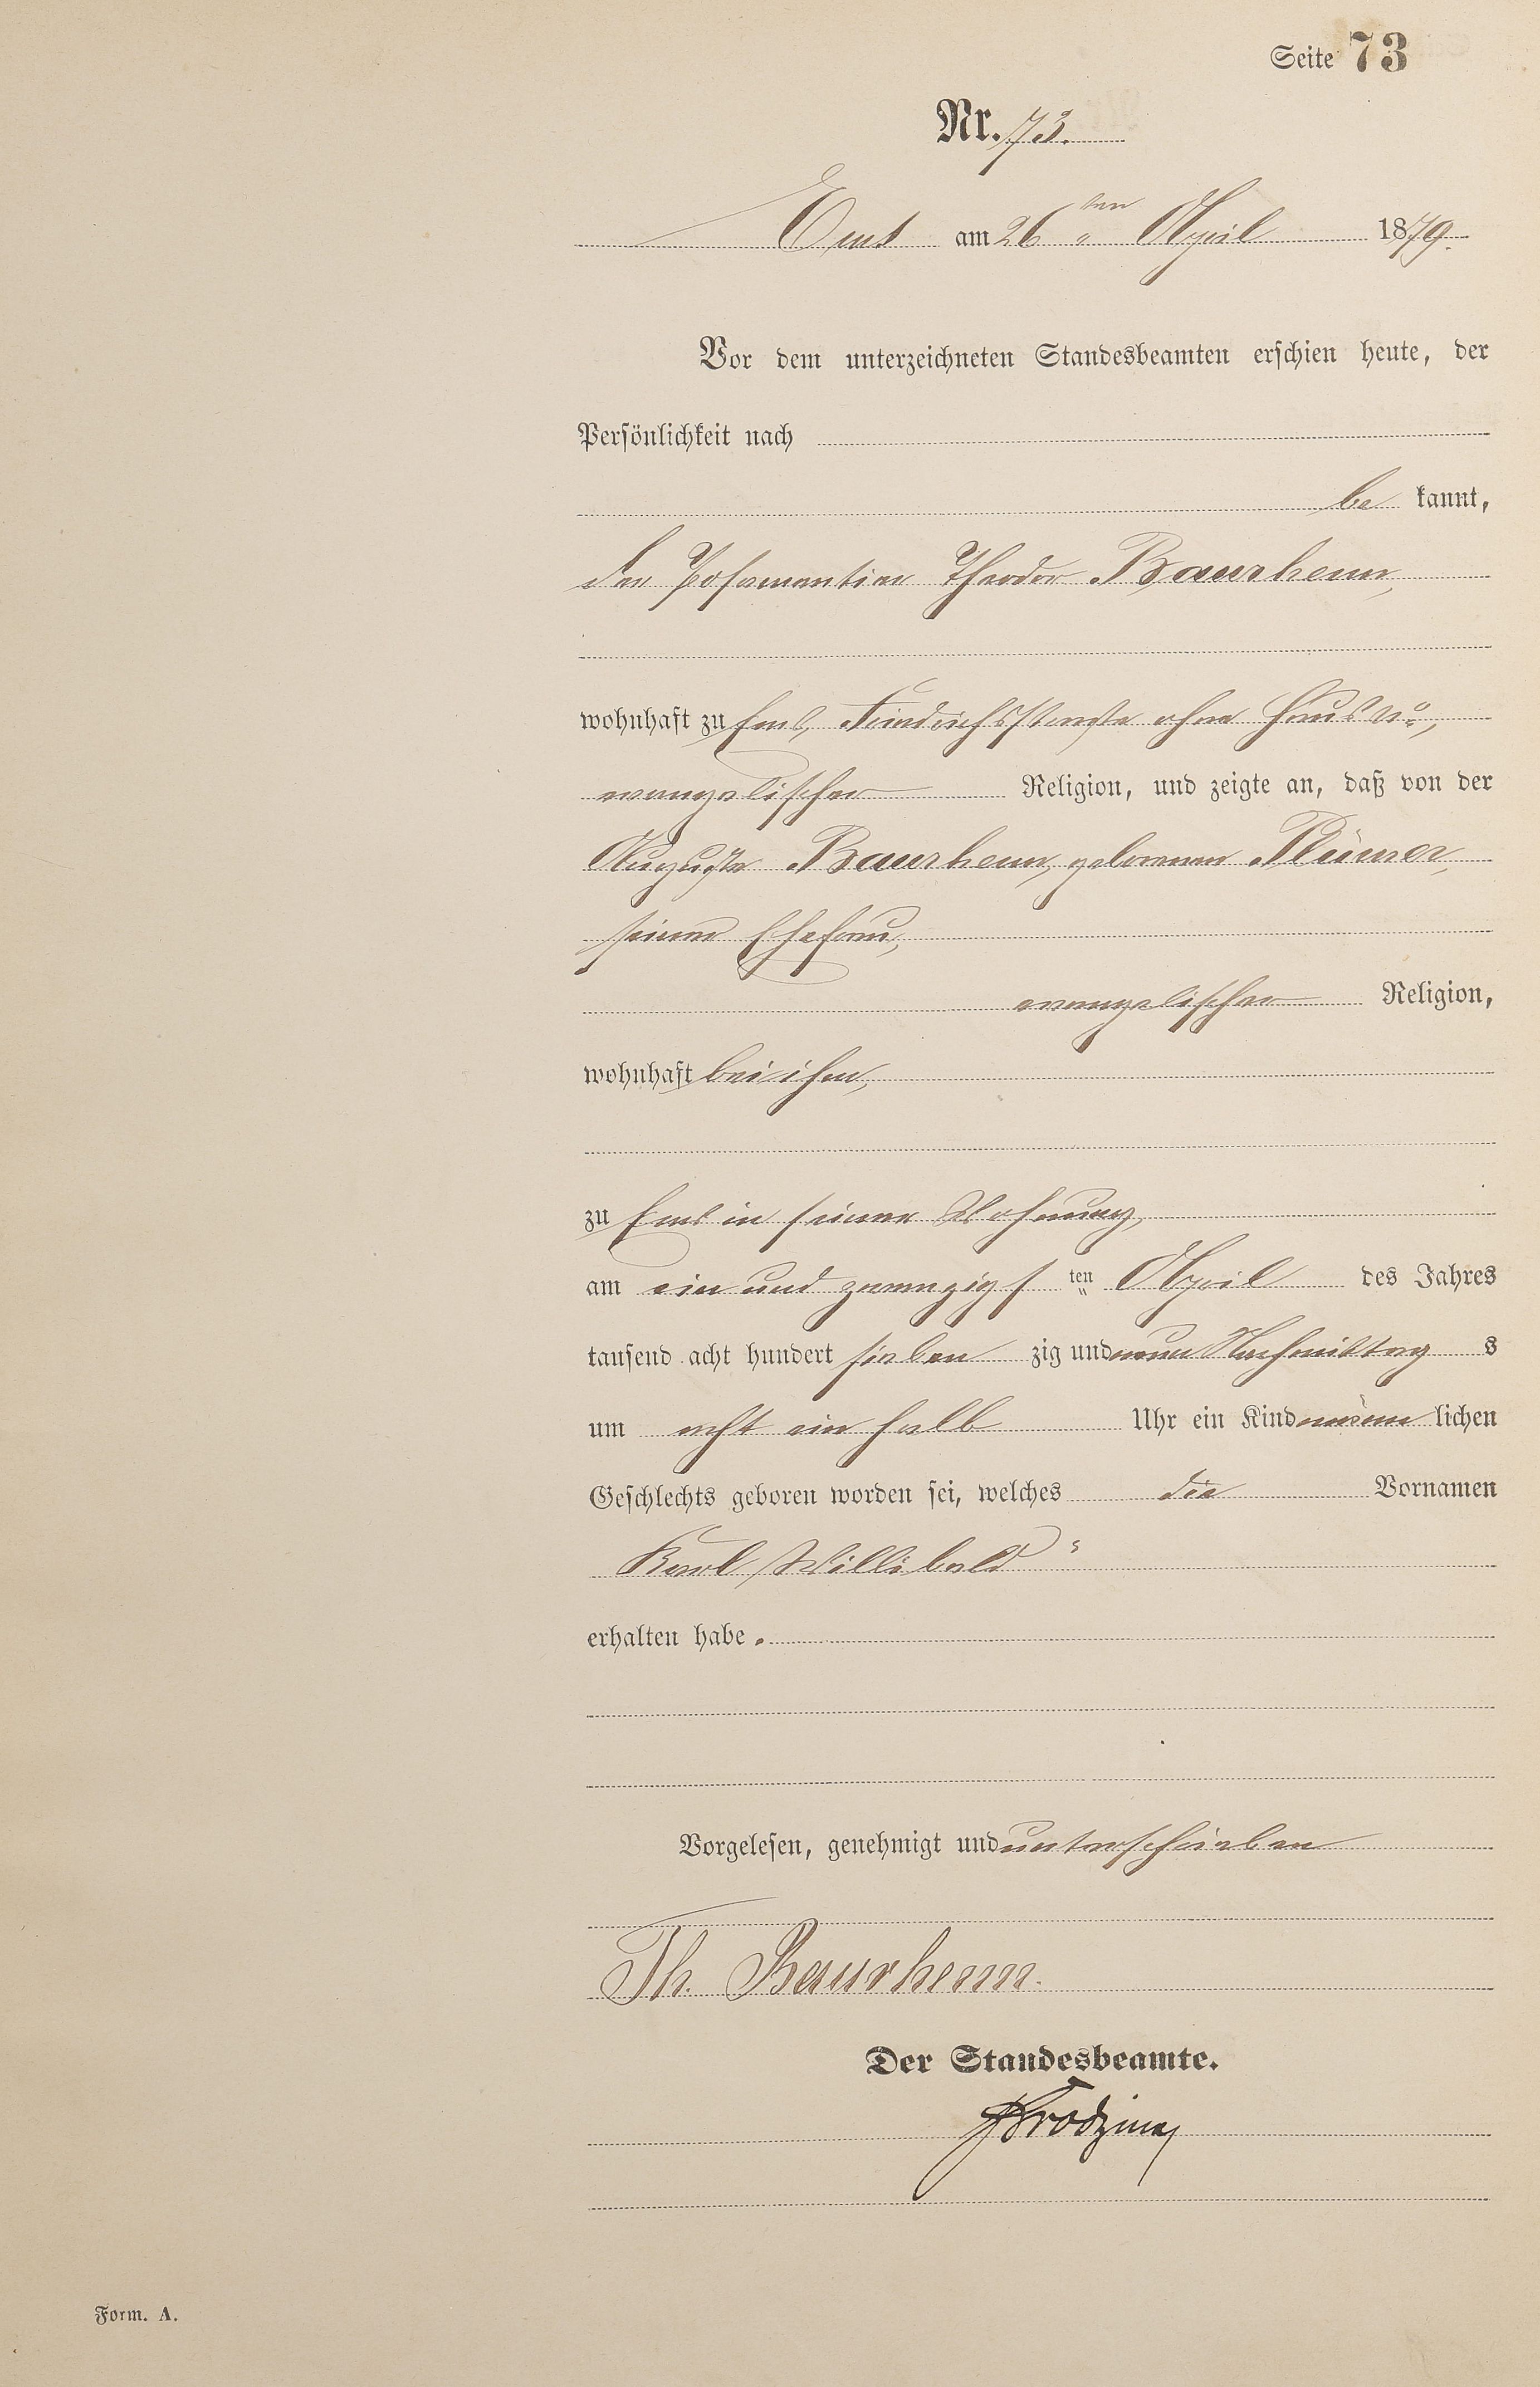 Seite 73
Nr. 73.
Ems am 26ten April 1879.
Vor dem unterzeichneten Standesbeamten erschien heute, der
Persönlichkeit nach
be kannt,
der Posamentier Theodor Baurhenn,
wohnhaft zu Ems, Friedrichsstraße ohne Haus No,
evangelischer Religion, und zeigte an, daß von der
Auguste Baurhenn, geborenen Plümer,
seiner Ehefrau,
evangelischer Religion,
wohnhaft bei ihm,
zu Ems in seiner Wohnung,
am ein und zwanzigsten April des Jahres
tausend acht hundert sieben zig und neun Nachmittag s
um acht ein halb Uhr ein Kind männ lichen
Geschlechts geboren worden sei, welches die Vornamen
Karl Willibald
erhalten habe.
Vorgelesen, genehmigt und unterschrieben
Th. Baurhenn.
Der Standesbeamte.
Form. A.